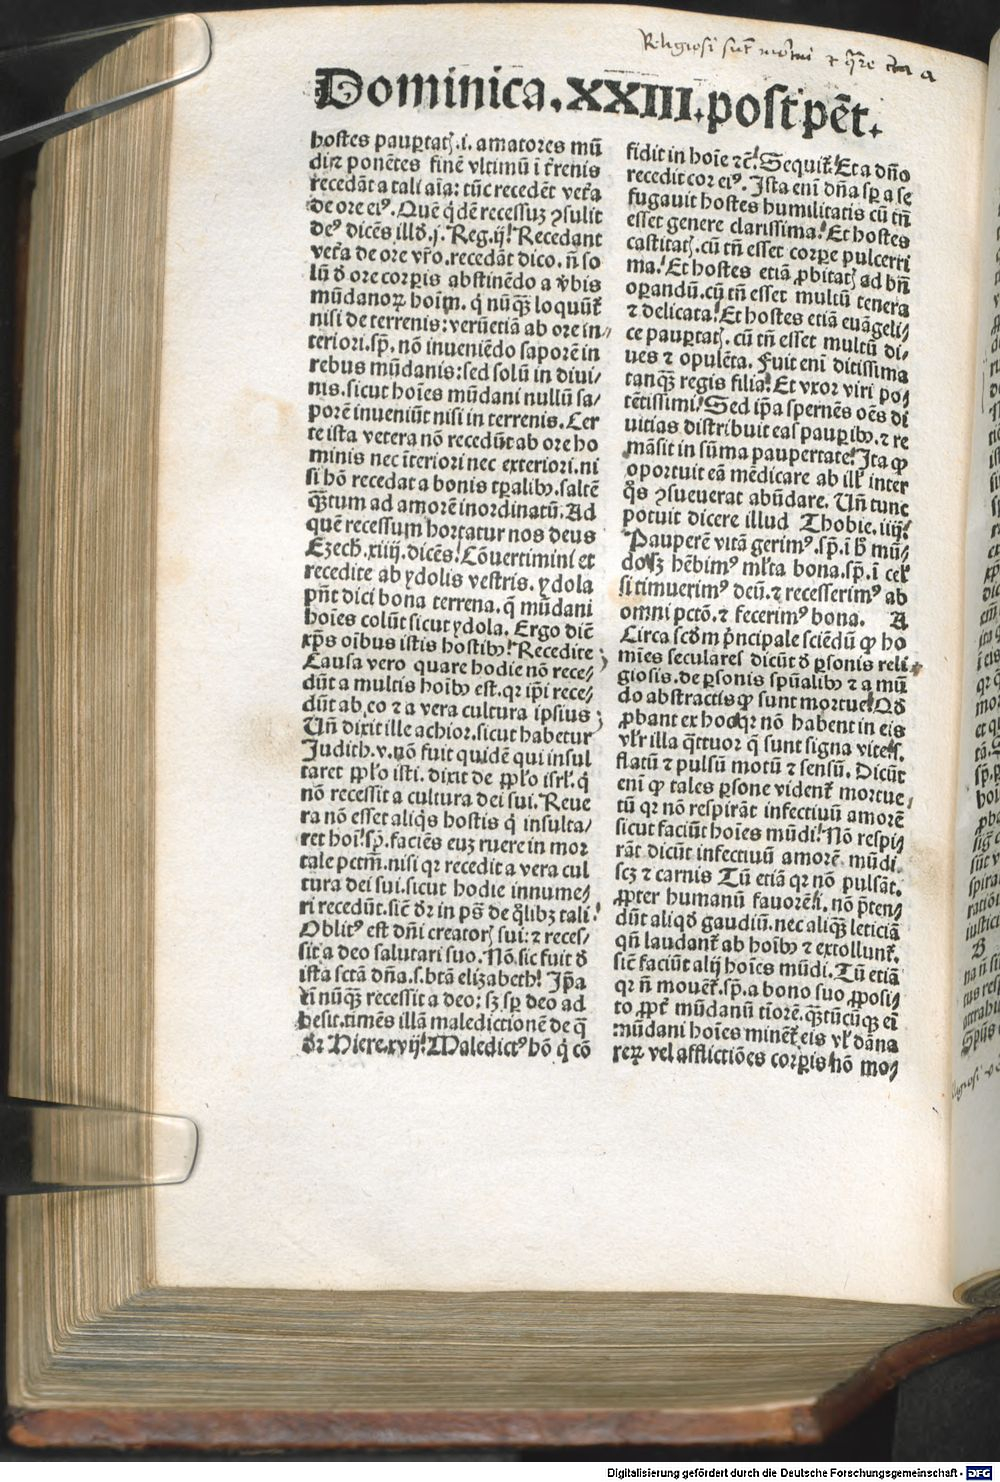 Religiosi sūt
Dominica.XXIII.post pēt.
hostes paup̄tatꝭ.i.amatores mū
diꝫ ponētes finē vltimū ī t̄renis
recedāt a tali aīa: tūc recedēt vet̄a
de ore eiꝰ. Quē q̇dē recessuꝫ ꝯsulit
deꝰ dicēs illd̄.j. Reg.ij. Recedant
vet̄a de ore vr̄o.recedāt dico.n̄ so
lū d̄ ore corꝑis abstinēdo a v̄bis
mūdanoꝝ hoīm. q̇ nūqꝫ loquūt̄
nisi de terrenis: verūetiā ab ore in⸗
teriori.sꝑ. nō inueniēdo saporē in
rebus mūdanis: sed solū in diui⸗
nis.sicut hoīes mūdani nullū sa⸗
porē inueniūt nisi in terrenis. Cer
te ista vetera nō recedūt ab ore ho
minis nec īteriori nec exteriori.ni
si hō recedat a bonis tꝑalibꝰ.saltē
qꝫtum ad amorē inordinatū. Ad
quē recessum hortatur nos deus
Ezech.xiiij.dicēs. Cōuertimini et
recedite ab ydolis vestris. ydola
pn̄t dici bona terrena. q̄ mūdani
hoīes colūt sicut ydola. Ergo diē
xp̄s oībus istis hostibꝰ. Recedite
Causa vero quare hodie nō rece⸗
dūt a multis hoībꝰ est.qꝛ ip̄i rece⸗
dūt ab eo ⁊ a vera cultura ipsius
Un̄ dixit ille achior.sicut habetur
Judith.v.nō fuit quidē qui insul
taret ppl̄o isti. dixit de ppl̄o isrl̄.q̇
nō recessit a cultura dei sui. Reue
ra nō esset aliq̇s hostis q̇ insulta⸗
ret hoī.sꝑ.faciēs euꝫ ruere in mor
tale pctm̄.nisi qꝛ recedit a vera cul
tura dei sui.sicut hodie innume⸗
ri recedūt.sic̄ dꝛ in ps̄ de q̇libꝫ tali.
Oblitꝰ est dn̄i creatorꝭ sui: ⁊ reces⸗
sit a deo salutari suo. Nō sic fuit d̄
ista sctā dn̄a.s.btā elizabeth. Ip̄a
em̄ nūqꝫ recessit a deo: sꝫ sꝑ deo ad
hesit.timēs illā maledictionē de q̄
dꝛ Hiere.xvij. Maledictꝰ hō q̇ cō
fidit in hoīe ⁊c̄. Sequit̄. Et a dn̄o
recedit cor eiꝰ. Ista eni dn̄a sꝑ a se
fugauit hostes humilitatis cū tn̄
esset genere clarissima. Et hostes
castitatꝭ.cū tn̄ esset corꝑe pulcerri
ma. Et hostes etiā ꝓbitatꝭ ad bn̄
oꝑandū.cū tn̄ esset multū tenera
⁊ delicata. Et hostes etiā euāgeli⸗
ce pauꝑtatꝭ. cū tn̄ esset multū di⸗
ues ⁊ opulēta. Fuit eni ditissima
tanqꝫ regis filia. Et vxor viri po⸗
tētissimi. Sed ip̄a spernēs oēs di
uitias distribuit eas pauꝑibꝰ.⁊ re
māsit in sūma paupertate. Ita ꝙ
oportuit eā mēdicare ab ill̄ inter
q̇s ꝯsueuerat abūdare. Un̄ tunc
potuit dicere illud Thobie.iiij.
Pauperē vitā gerimꝰ.sꝑ.ī h̄ mū⸗
do sꝫ hēbimꝰ ml̄ta bona.sꝑ.ī cel̄
si timuerimꝰ deū.⁊ recesserimꝰ ab
omni pctō.⁊ fecerimꝰ bona. A
Circa scdm̄ p̄ncipale sciēdū ꝙ ho
mīes seculares dicūt d̄ ꝑsonis reli⸗
giosis.de ꝑsonis spūalibꝰ ⁊ a mū
do abstractis ꝙ sunt mortue. Qd̄
ꝓbant ex hoc qꝛ nō habent in eis
vl̄r illa q̄ttuor q̄ sunt signa vite.s.
flatū ⁊ pulsū motū ⁊ sensū. Dicūt
eni ꝙ tales ꝑsone vident̄ mortue
tū qꝛ nō respirāt infectiuū amorē
sicut faciūt hoīes mūdi. Nō respi⸗
rāt dicūt infectiuū amorē mūdi
scꝫ ⁊ carnis Tū etiā qꝛ nō pulsāt.
ꝓpter humanū fauorē. nō p̄ten⸗
dūt aliqd̄ gaudiū.nec aliqꝫ leticiā
qn̄ laudant̄ ab hoībꝰ ⁊ extollunt̄.
sic̄ faciūt alij hoīes mūdi. Tū etiā
qꝛ n̄ mouēt̄.sꝑ.a bono suo ꝓposi⸗
to ꝓpt̄ mūdanū tiōrē.qꝫtūcūqꝫ ei
mūdani hoīes minēt̄ eis vl̄ dāna
reꝝ vel afflictiōes corꝑis hō mo⸗
Digitalisierung gefördert durch die Deutsche Forschungsgemeinschaft - DFG